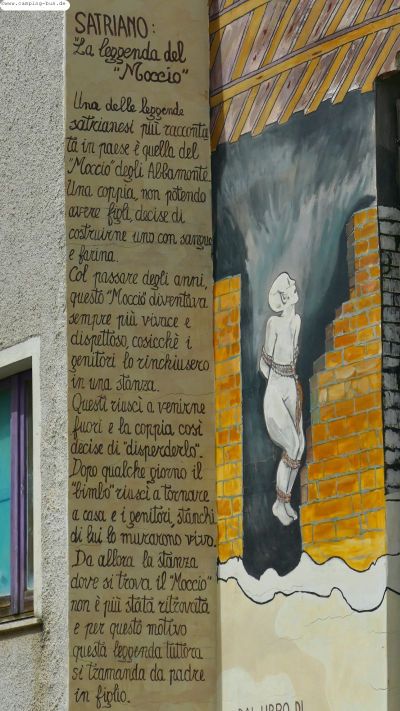 www.camping-bus.de
SATRIANO:
"La leggenda del
"Moccio"
Una delle leggende
satrianesi più racconta
ta in paese è quella del
"Moccio" degli Abbamonte.
Una coppia, non potendo
avere figli, decise di
costruirne uno con sangue
e farina.
Col passare degli anni,
questo "Moccio" diventava
sempre più vivace e
dispettoso, cosicchè i
genitori lo rinchiusero
in una stanza.
Questi riuscì a venirne
fuori e la coppia così
decise di "disperderlo".
Dopo qualche giorno il
"bimbo" riuscì a tornare
a casa e i genitori, stanchi
di lui lo murarono vivo.
Da allora la stanza
dove si trova il "Moccio"
non è più stata ritrovata
e per questo motivo
questa leggenda tuttora
si tramanda da padre
in figlio.
DAL LIBRO DI